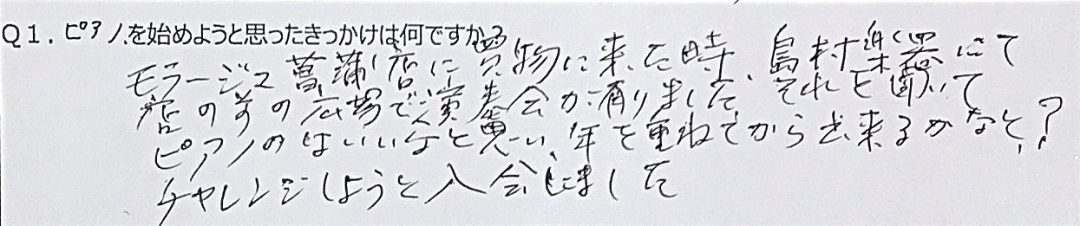 Q1. ピアノを始めようと思ったきっかけは何ですか?
モラージュ菖蒲店に買物に来た時、島村楽器にて
店の前の広場で演奏会が有りました それを聞いて
ピアノのはいいなと思い、年を重ねてから出来るかなと?
チャレンジしようと入会しました